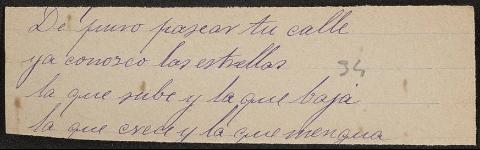 De puro pasear tu calle
ya conosco las estrellas
34
la que sube y la que baja
la que crece y la que mengua